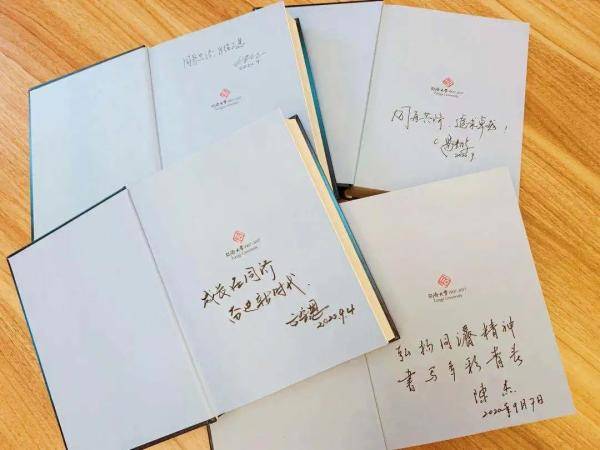 同舟共济,自强不息
2020.9
同济大学 1907-2017
Tongji University
同济大学 1907-2017
Tongji University
同舟共济,追求卓越!
2020.9
同济大学 1907-2017
Tongji University
成长在同济
奋进新时代.
方守恩 2020.9.4
同济大学 1907-2017
Tongji University
弘扬同濟精神
书写多彩青春
陈杰
2020年9月7日